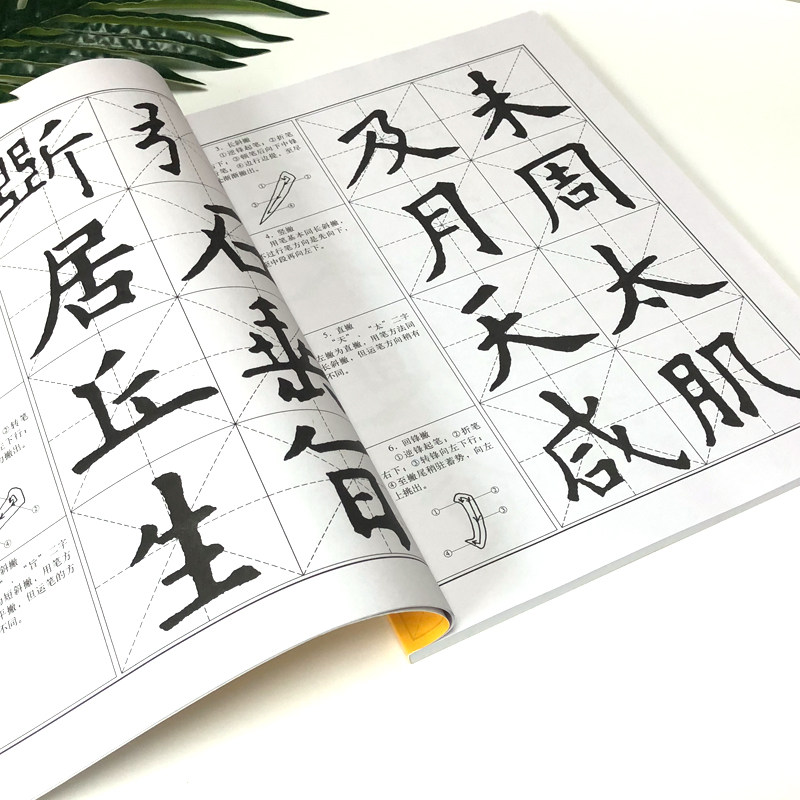 斷
居
丘 垂
生
②转笔
下行;
撇出。
①
②
④
斜撇
“旨”二字
短斜撇,用笔方
平撇,但运笔的方
不同。
3、长斜撇
①逆锋起笔;②折笔
右下;③顿笔后向下中锋
笔;④边行边提,至尾
渐渐撇出。
①
②
③
4、竖撇
用笔基本同长斜撇,
不过行笔方向是先向下,
至中段再向左下。
5、直撇
“天”、“太”二字
左撇为直撇,用笔方法同
长斜撇,但运笔方向稍有
不同。
6、回锋撇
①逆锋起笔;②折笔
右下;③转锋向左下行;
④至撇尾稍驻蓄势,向左
上挑出。
①
②
③
④
及 未
月 周
天 太
咸 肌